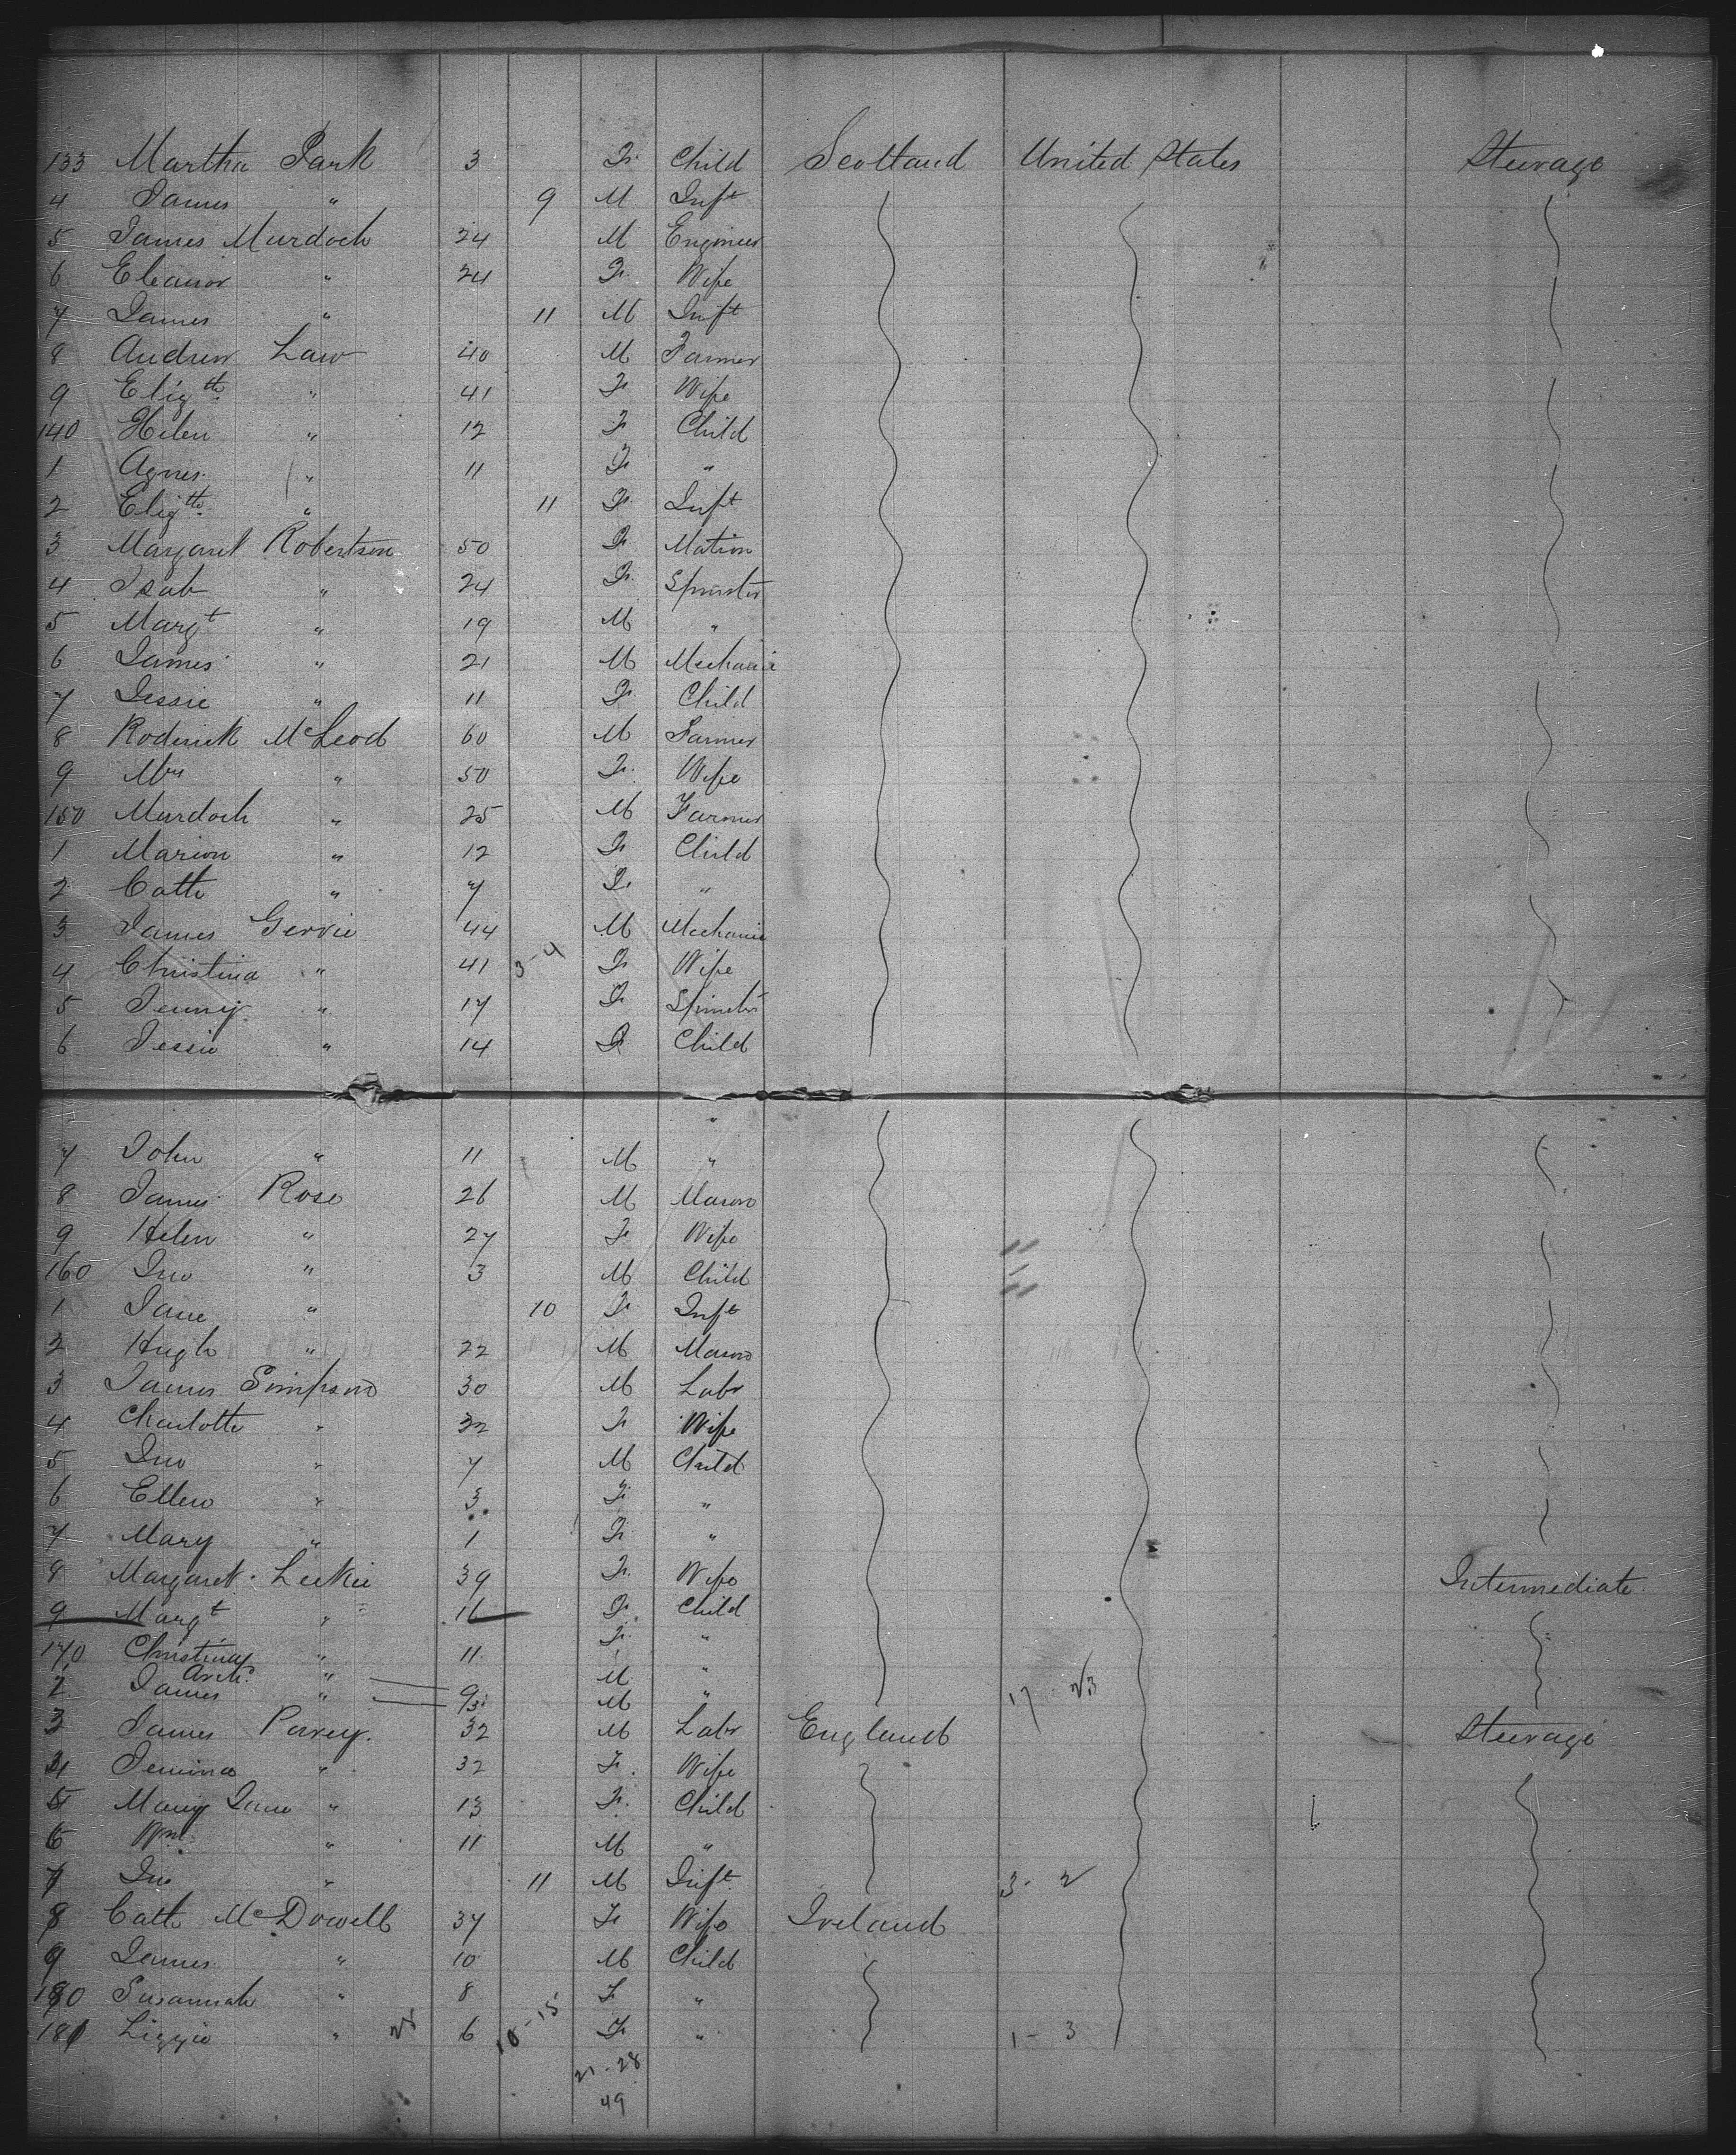 133 Martha Park 3 F. Child Scotland United States Steerage
4 James " 9 M Inft
5 James Murdoch 24 M Engineer
6 Eleanor " 24 F. Wife
7 James " 11 M Inft
8 Andrew Law 40 M Farmer
9 Elizth " 41 F Wife
140 Helen " 12 F Child
1 Agnes " 11 F "
2 Elizth " 11 F Inft
3 Margaret Robertson 50 F Matron
4 Isab " 24 F. Spinster
5 Margt " 19 M "
6 James " 21 M Mechanic
7 Jessie " 11 F Child
8 Roderick McLeod 60 M Farmer
9 Mrs " 50 F. Wife
150 Murdoch " 25 M Farmer
1 Marion " 12 F Child
2 Cath " 7 F. "
3 James Gervie 44 M Mechanic
4 Christina " 41 3-4 F Wife
5 Jenny " 17 F Spinster
6 Jessie " 14 F Child
"
7 John " 11 M "
8 James Rose 26 M Mason
9 Helen " 27 F Wife
160 Jno " 3 M Child
1 Jane " 10 F Inft
2 Hugh " 22 M Mason
3 James Simpson 30 M Labr
4 Charlotte " 32 F Wife
5 Jno " 7 M Child
6 Ellen " 3 F "
7 Mary " 1 F "
8 Margaret Leckie 39 F. Wife Intermediate
9 Margt " 16 F. Child
170 Christina " 11 F. "
Archd " 9 M "
2 James " 3 M " 17
3 James Povey. 32 M Labr England Steerage
4 Jemima " 32 F. Wife
5 Mary Jane " 13 F. Child
6 Wm " 11 M "
7 Jno " 11 M Inft 3-2
8 Cath McDowell 37 F Wife Ireland
9 James " 10 M Child
180 Susannah " 8 F "
181 Lizzie " 6 10-15 F " 1-3
21-28
49